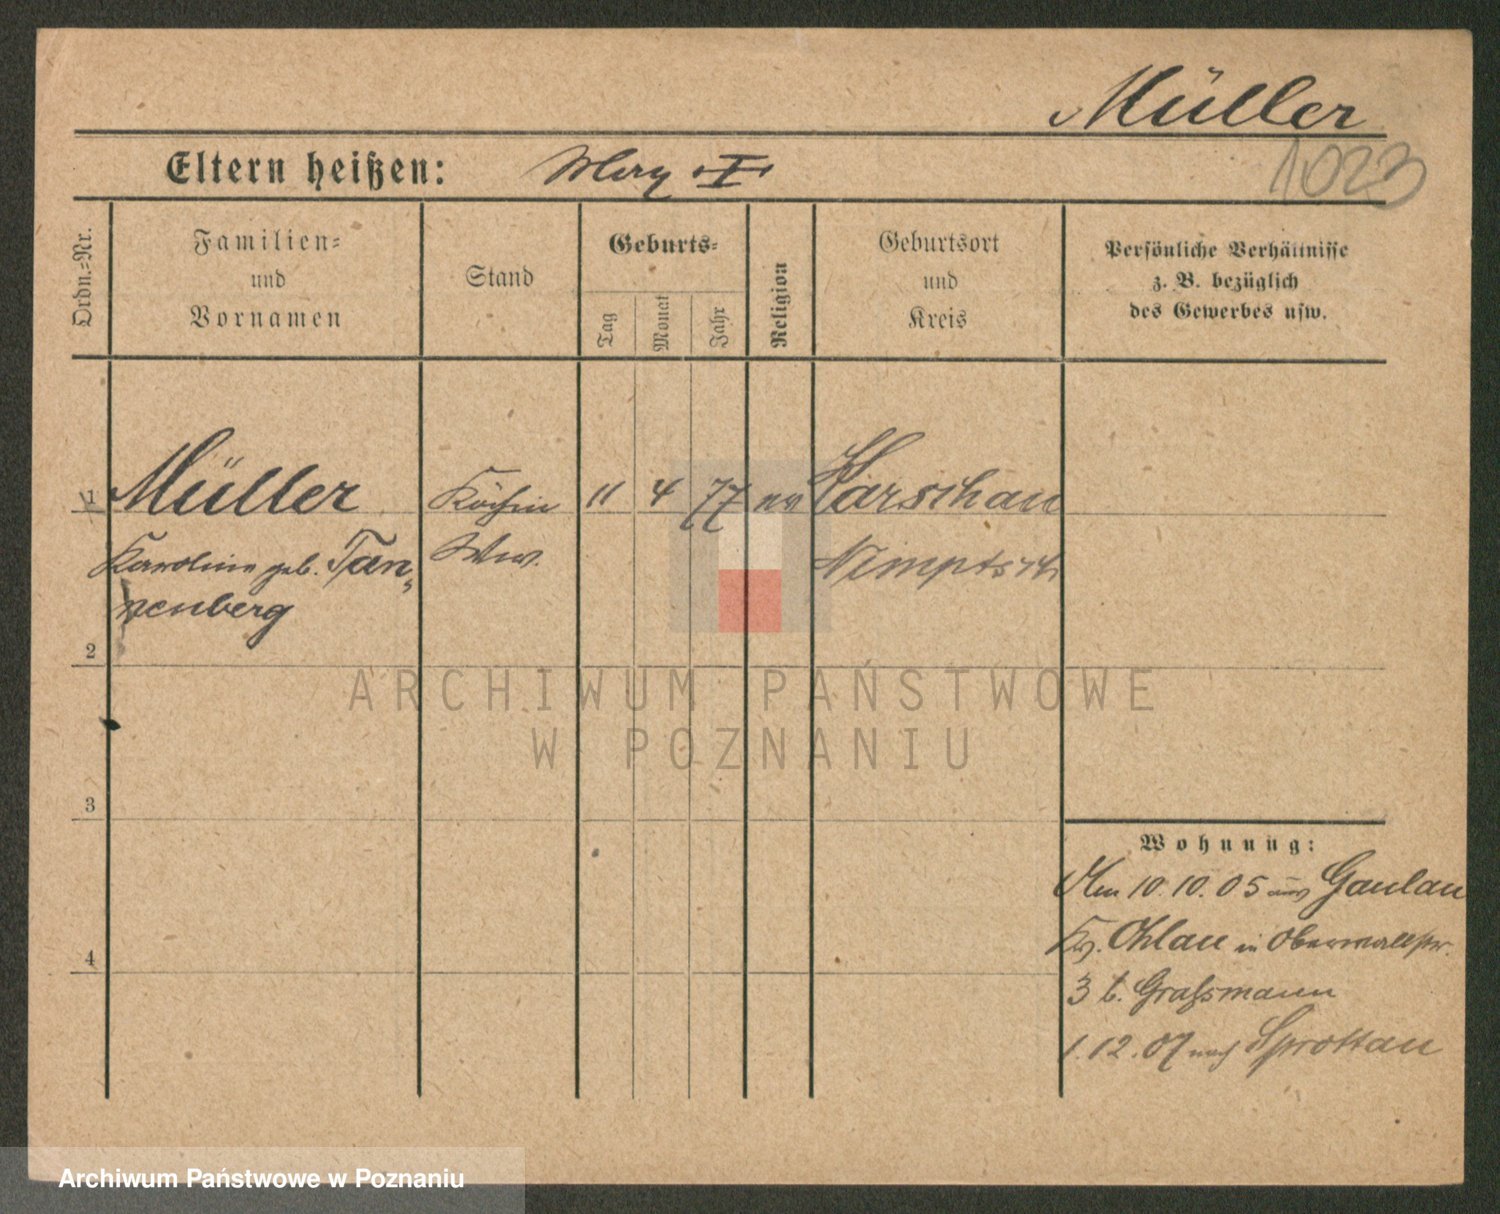 Müller
Eltern heißen:
1023
Ordn.=Nr.
Familien=
und
Vornamen
Stand
Geburts=
Tag
Monat
Jahr
Religion
Geburtsort
und
Kreis
Persönliche Verhältnisse
z. B. bezüglich
des Gewerbes usw.
1 Müller Köchin 11 4 77 ev Harschau
Karoline geb. Tan„ Ww. Nimptsch
nenberg
2
3
4
Wohnung:
Am 10.10.05 aus Gaulau
Kr. Ohlau in Oberwallstr.
3 b. Graßmann
1.12.07 nach Sprottau
ARCHIWUM PAŃSTWOWE
W POZNANIU
Archiwum Państwowe w Poznaniu